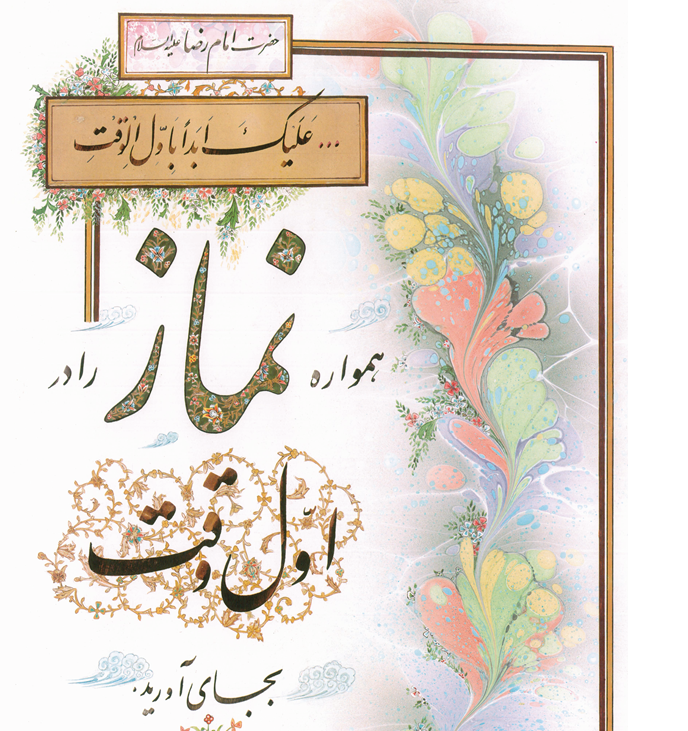 حضرت امام رضا علیه السلام
... عَلَیکَ اَبَداً بِاَوَّلِ الوَقتِ
همواره نماز را در
اوّل وقت
بجای آورید.